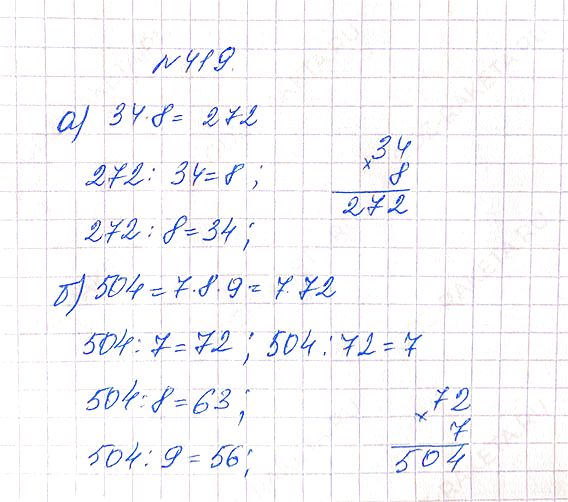 №419.
а) 34·8= 272
272: 34=8;
34
× 8
272
272: 8=34;
б) 504=7·8·9=7·72
504:7=72; 504:72=7
504:8=63;
504: 9=56;
72
× 7
504